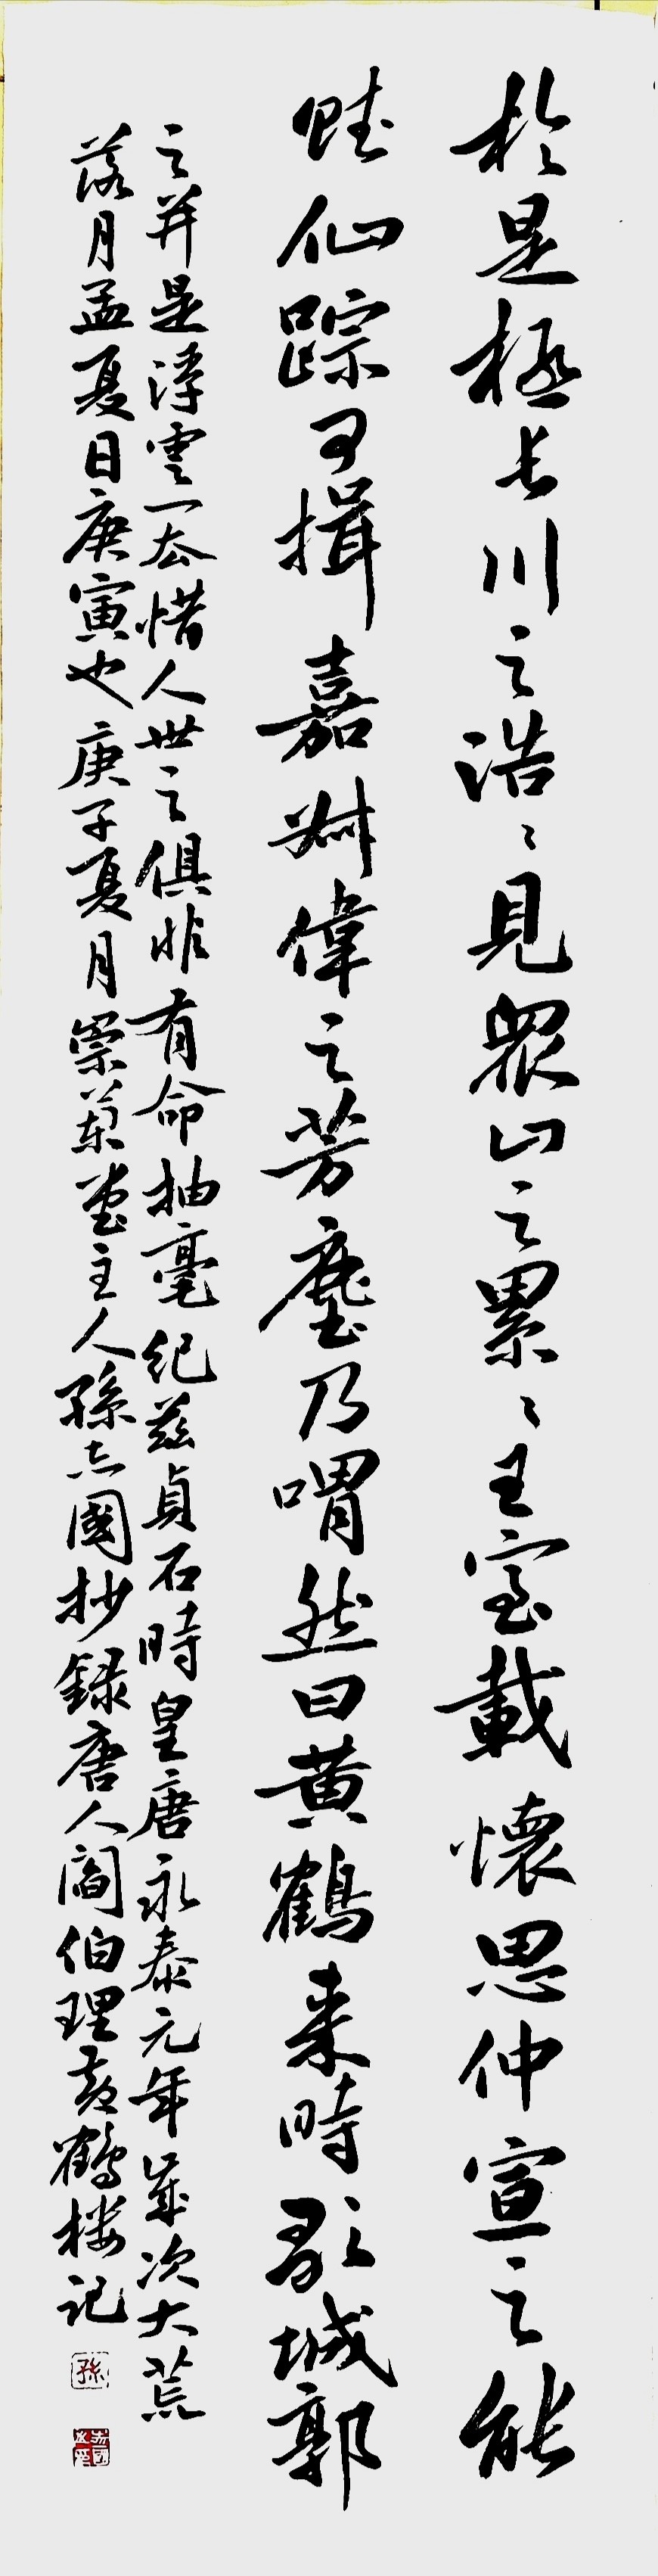 於是極長川之浩〻見眾山之累〻王室載懷思仲宣之能
賦仙踪可揖嘉叔偉之芳塵乃喟然曰黃鶴來時歌城郭
之并是浮雲一去惜人世之俱非有命抽毫紀茲貞石時皇唐永泰元年歲次大荒
落月孟夏日庚寅也庚子夏月崇蘭堂主人孫志國抄錄唐人閻伯理黃鶴楼記
孫